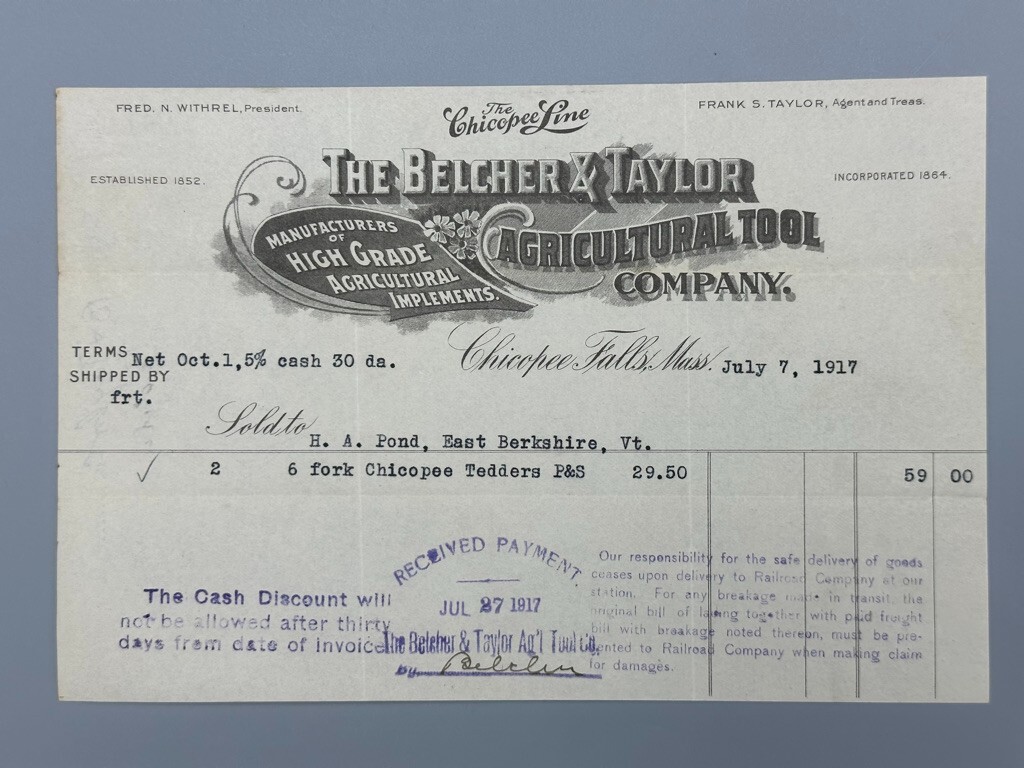 FRED. N. WITHREL, President.
The Chicopee Line
FRANK S. TAYLOR, Agent and Treas.
ESTABLISHED 1852.
THE BELCHER & TAYLOR
INCORPORATED 1864.
AGRICULTURAL TOOL
COMPANY.
MANUFACTURERS
OF
HIGH GRADE
AGRICULTURAL
IMPLEMENTS.
TERMS Net Oct.1,5% cash 30 da.
Chicopee Falls, Mass. July 7, 1917
SHIPPED BY
frt.
Sold to H. A. Pond, East Berkshire, Vt.
✓ 2 6 fork Chicopee Tedders P&S 29.50 59 00
The Cash Discount will
not be allowed after thirty
days from date of invoice
RECEIVED PAYMENT.
JUL 27 1917
The Belcher & Taylor Ag'l Tool Co.
by Belcher
Our responsibility for the safe delivery of goods
ceases upon delivery to Railroad Company at our
station. For any breakage made in transit, the
original bill of lading together with paid freight
bill with breakage noted thereon, must be pre-
sented to Railroad Company when making claim
for damages.